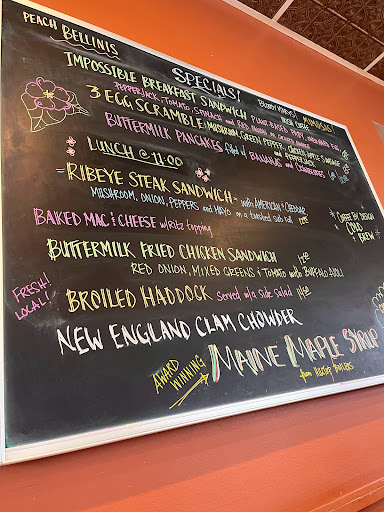 PEACH BELLINIS
SPECIALS!
BLOODY MARYS! MIMOSAS!
IMPOSSIBLE BREAKFAST SANDWICH
PEPPERJACK, TOMATO, SPINACH and
3 EGG SCRAMBLE: MUSHROOM, GREEN PEPPER, CHICKEN APPLE SAUSAGE
and PEPPERJACK
BUTTERMILK PANCAKES filled w/ BANANAS and
LUNCH @ 11:00
RIBEYE STEAK SANDWICH - with AMERICAN + CHEDDAR
MUSHROOM, ONION, PEPPERS and MAYO on a toasted sub roll
BAKED MAC & CHEESE w/ Ritz topping
COFFEE BY DESIGN
COLD
BREW
BUTTERMILK FRIED CHICKEN SANDWICH
RED ONION, MIXED GREENS & TOMATO with BUFFALO AIOLI
FRESH!
LOCAL!
BROILED HADDOCK Served w/ a side Salad
NEW ENGLAND CLAM CHOWDER
AWARD
WINNING
MAINE MAPLE SYRUP
from